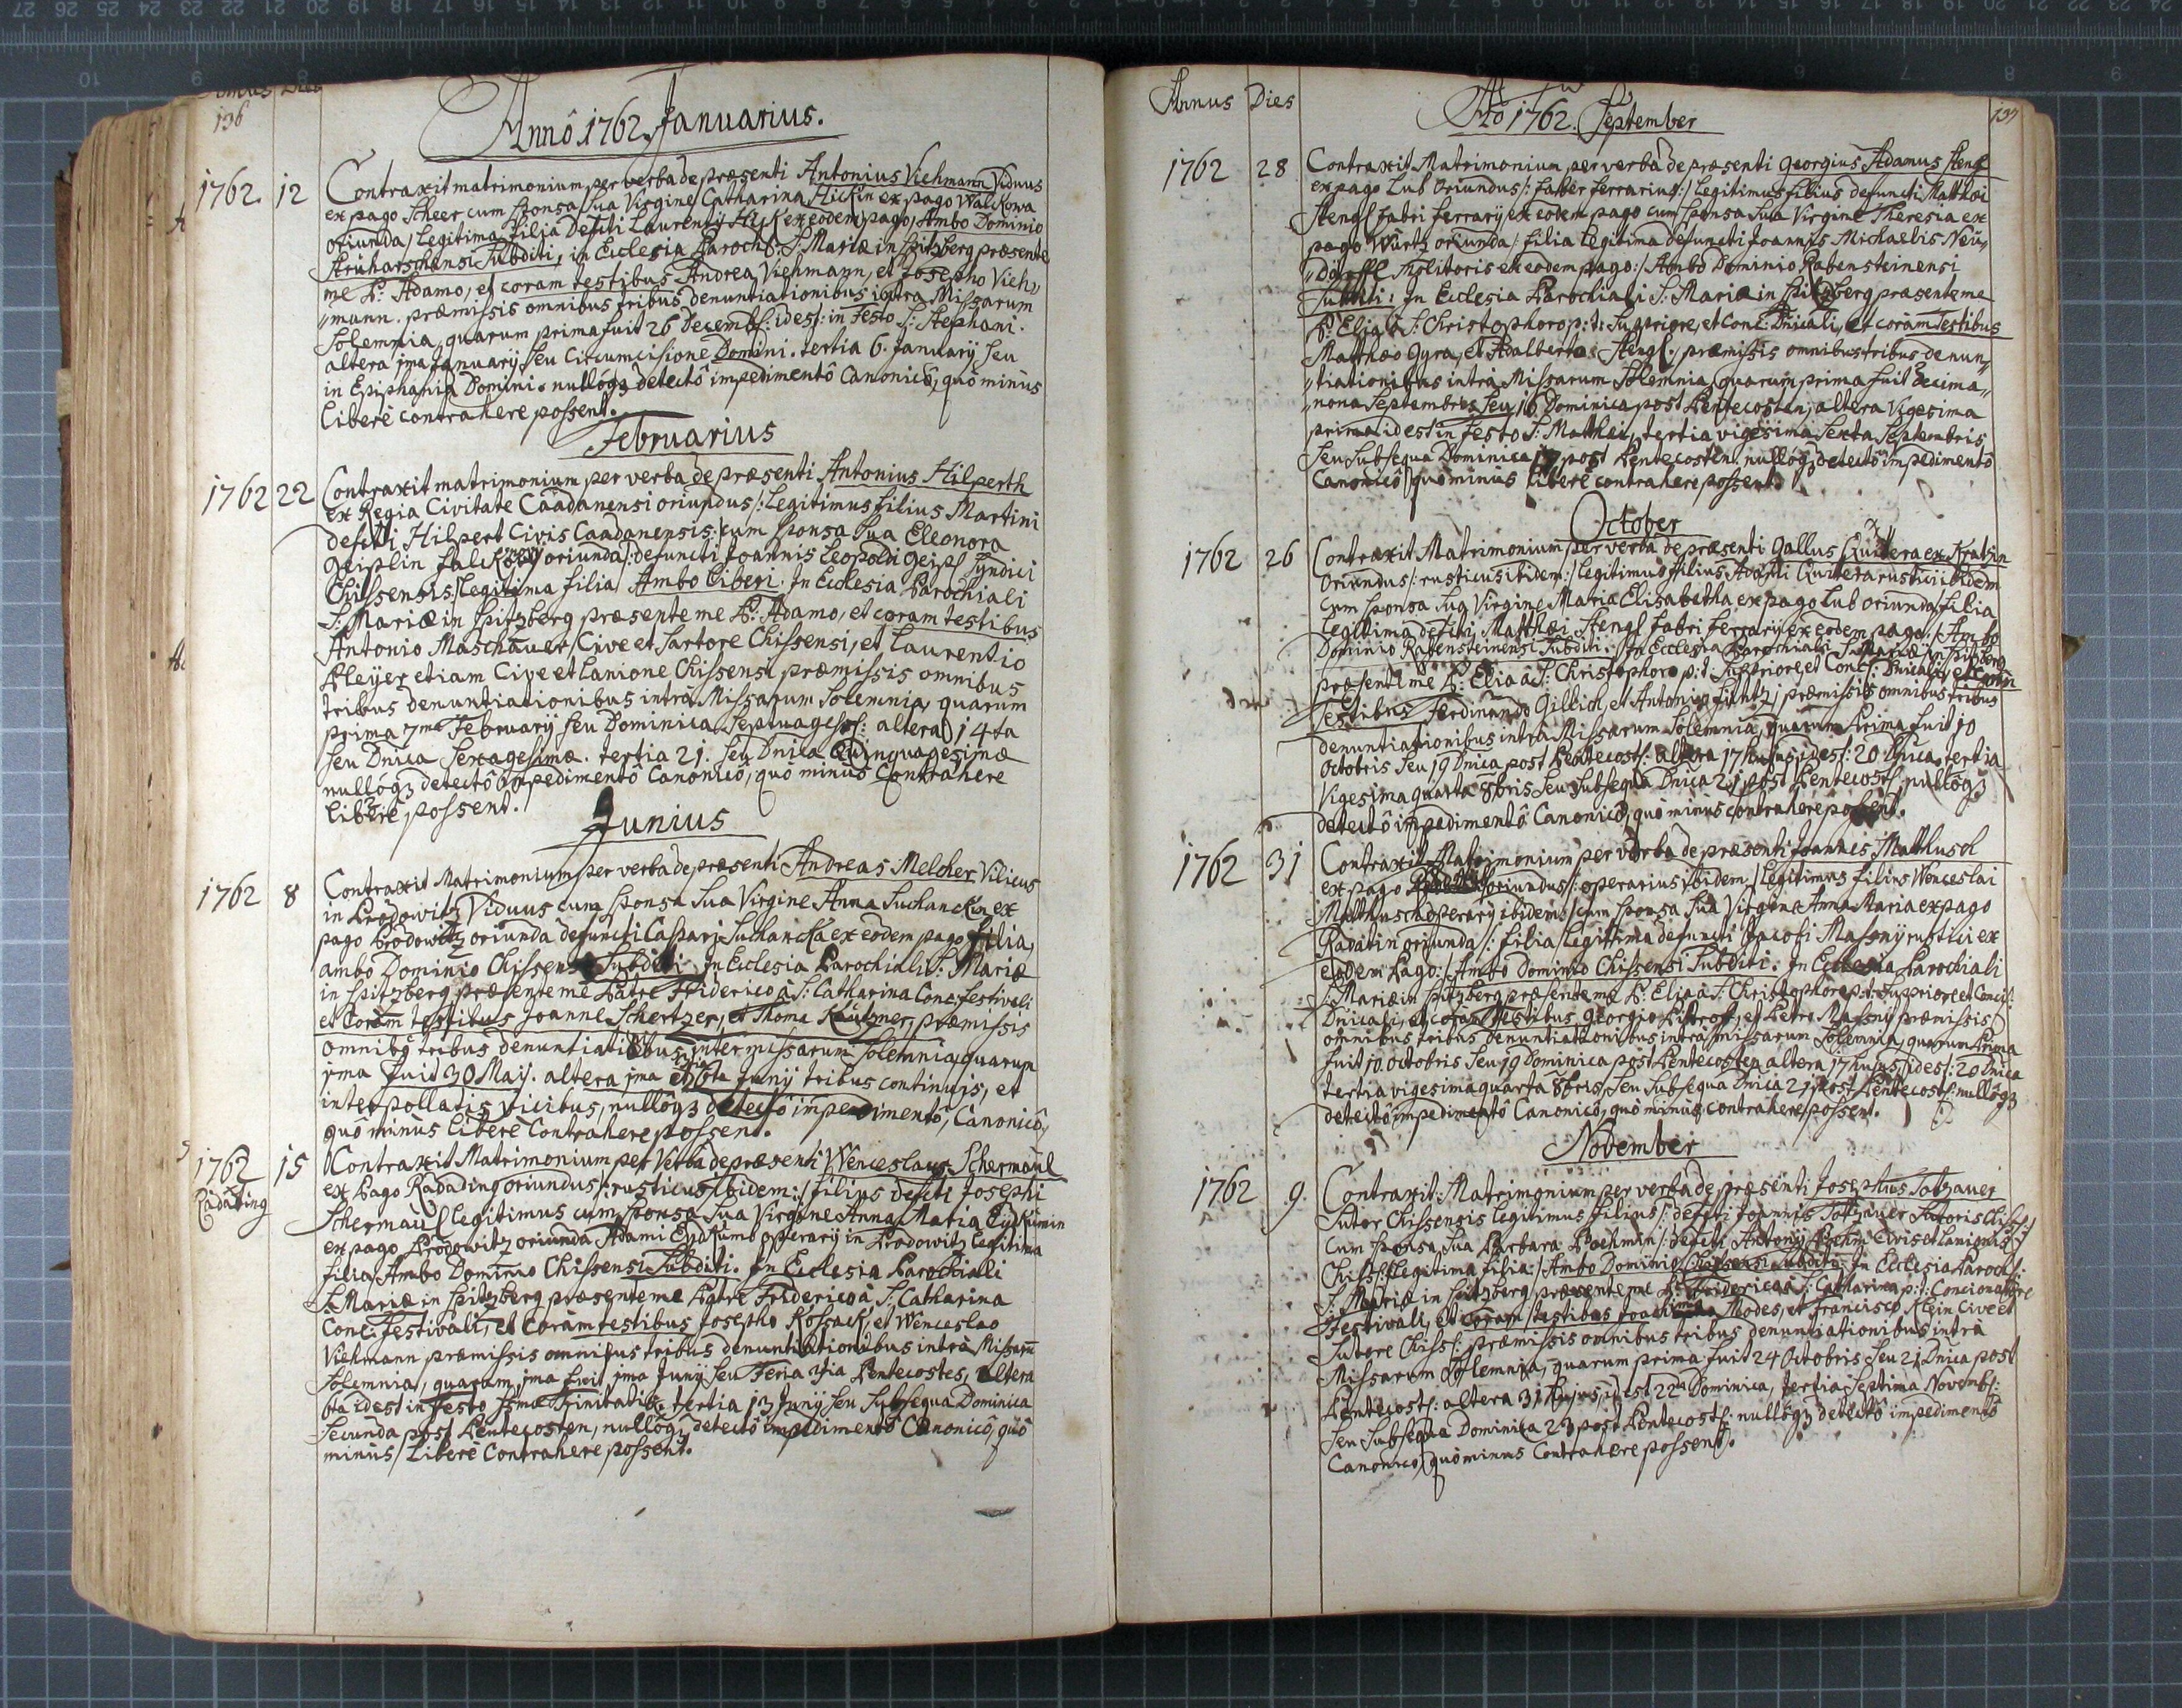 Annus Dies
136
Annô 1762 Januarius.
1762. 12 Contraxit matrimonium per verba de præsenti Antonius Viehmann Viduus
ex pago Scheer cum Sponsa Sua Virgine Catharina Hickin ex pago Walkowa
oriunda / Legitima filia Defcti Laurentij Hick ex eodem pago / Ambo Dominio
Struharschensi Subditi, in Ecclesia Paroch: S: Mariæ in Spitzberg præsente
me P: Adamo, et coram testibus Andrea Viehmann, et Josepho Vieh„
„mann. præmissis omnibus tribus denuntiationibus intra Missarum
Solemnia, quarum prima fuit 26 Decemb: idest: in Festo S: Stephani.
altera 1ma Januarij Seu Circumcisione Domini. tertia 6. Januarij Seu
in Epiphania Domini. nullóq3 detectô impedimentô Canonicô, quô minùs
liberè contrahere possent.
Februarius
1762 22 Contraxit matrimonium per verba de præsenti Antonius Hilperth
ex Regia Civitate Caadanensi oriundus /: Legitimus filius Martini
defcti Hilpert Civis Caadanensis: cum Sponsa Sua Eleonora
Geiplin oriunda /: defuncti Joannis Leopoldi Geipl Syndici
Chissensis / Legitima filia Ambo liberi. In Ecclesia Parochiali
S: Mariæ in Spitzberg præsente me P: Adamo, et coram testibus
Antonio Maschauer / Cive et Sartore Chissensi, et Laurentio
Pleyer etiam Cive et Lanione Chissensi præmissis omnibus
tribus denuntiationibus intrà Missarum Solemnia, quarum
prima 7ma Februarij Seu Dominica Septuages: altera 14ta
Seu Dnica Sexagesimæ. tertia 21. Seu Dnica Quinquagesimæ
nullôq3 detectô impedimentô Canonicô, quô minùs Contrahere
liberè possent.
Junius
1762 8 Contraxit Matrimonium per verba de præsenti Andreas Melcher Vilicus
in Prodowitz Viduus cum Sponsa Sua Virgine Anna Suchanckin ex
pago Prodowitz oriunda defuncti Caspari Suchancka ex eodem pago filia,
ambo Dominio Chissensi Subditi, In Ecclesia Parochiali S: Mariæ
in Spitzberg præsente me Patre Friderico à S: Catharina Conc: festivali
et Coràm testibus Joanne Schertzer, et Thoma præmissis
omnibq tribus denuntiationibus inter missarum Solemnia, quarum
1ma fuit 30 Maij. altera 1ma et 6ta Junij tribus continuis, et
interpollatis vicibus, nullôq3 detectô impedimentô, Canonicô,
quô minus liberè Contrahere possent.
1762 15 Contraxit Matrimonium per Verba de præsenti Wenceslaus Schermaul
Radating
ex Pago Radading oriundus /: rusticus ibidem: / filius defcti Josephi
Schermaul legitimus cum Sponsa Sua Virgine Anna Maria
ex pago Prodowitz oriunda Adami operarij in Prodowitz legitima
filia, Ambo Dominio Chissensi Subditi. In Ecclesia Parochiali
S. Mariæ in Spitzberg præsente me Patre Friderico à S: Catharina
Conc: festivali, et Coràm testibus Josepho Kossack, et Wenceslao
Viehmann præmissis omnibus tribus denuntiationibus intrà Missarum
Solemnia, quarum 1ma fuit 1ma Junij Seu Feria 3tia Pentecostes, altera
6ta idest in Festo Ssmæ Trinitatis. tertia 13 Junij Seu Subsequa Dominica
Secunda post Pentecosten, nullôq3 detectô impedimentô Canonicô, quô
minùs / liberè Contrahere possent.
Annus Dies
Aô 1762. September
137
1762 28 Contraxit Matrimonium per verba de præsenti Georgius Adamus Stengl
ex pago Lub oriundus /: faber ferrarius: / Legitimus filius defuncti Matthæi
Stengl fabri ferrarij ex eodem pago cum Sponsa Sua Virgine Theresia ex
pago Würtz oriunda / filia Legitima defuncti Joannis Michaelis Neü„
„dörffl Molitoris ex eodem pago: / Ambo Dominio Rabensteinensi
Subditi: In Ecclesia Parochiali S: Mariæ in Spitzberg præsente me
P: Elia à S: Christophoro p: t: Suppriore, et Conc: Dnicali, et coràm testibus
Matthæo Gyra, et Adalberto Stengl: præmissis omnibus tribus denun„
„tiationibus intrà Missarum Solemnia, quarum prima fuit decima„
„nona Septembris Seu 16 Dominica post Pentecosten, altera Vigesima
prima idest in Festo S: Matthæi, tertia vigesima Sexta Septembris
Seu Subsequa Dominica 17 post Pentecosten. nullôq3 detectô impedimentô
Canonicô, quô minùs liberè contrahere possent.
October
1762 26 Contraxit Matrimonium per verba de præsenti Gallus Quitera ex Kratzin
oriundus /: rusticus ibidem: / Legitimus filius Adami Quitera rustici ibidem
Cum Sponsa Sua Virgine Maria Elisabetha ex pago Lub oriunda / filia
Legitima defcti Matthæi Stengl fabri ferrarij ex eodem pago: / Ambo
Dominio Rabensteinensi Subditi: In Ecclesia Parochiali S: Mariæ in Spitzberg
præsente me P: Elia à S: Christophoro p: t: Suppriore, et Conc: Dnicali, et Coràm
testibus Ferdinando Gillich, et Antonio præmissis omnibus tribus
denuntiationibus intrà Missarum Solemnia, quarum Prima fuit 10
Octobris Seu 19 Dnica post Pentecost: altera 17 hujus, idest: 20 Dnica, tertia
Vigesima quarta 8bris Seu Subsequa Dnica 21 post Pentecost: nullôq3
detectô impedimentô Canonicô, quô minus contrahere possent.
1762 31 Contraxit Matrimonium per verba de præsenti Joannes Matthusch
ex pago oriundus /: operarius ibidem: / Legitimus filius Wenceslai
Matthusch operarij ibidem: / cum Sponsa Sua Virgine Anna Maria ex pago
Radatin oriunda /: filia legittima defuncti Jacobi Massny rustici ex
eodem Pago: / Ambo Dominio Chissensi Subditi: In Ecclesia Parochiali
S: Mariæ in Spitzberg præsente me P: Elia à S: Christophoro p: t: Suppriore et Conc:
Dnicali, et coràm testibus Georgio Pistroff, et Petro Massny præmissis
omnibus tribus denuntiationibus intrà missarum Solemnia, quarum Prima
fuit 10. Octobris Seu 19 Dominica post Pentecosten, altera 17 hujus, idest: 20 Dnica
tertia vigesima quarta 8bris Seu Subsequa Dnica 21 post Pentecost: nullôq3
detectô impedimentô Canonicô, quô minùs contrahere possent.
November
1762 9. Contraxit Matrimonium per verba de præsenti Josephus Totzauer
Sutor Chissensis legitimus filius / defcti Joannis Totzauer Sutoris Chiss:
Cum Sponsa Sua Barbara Boehmin /: defcti Antonij Boehm Civis et Lanionis
Chiss: Legitima filia: / Ambo Dominio Chissensi Subditi: In Ecclesia Paroch:
S: Mariæ in Spitzberg præsente me P: Friderico à S: Catharina p: t: Concionatore
Festivali, et Coràm testibus Joachimo Modes, et Francisco Klein Cive et
Sutore Chiss: præmissis omnibus tribus denuntiationibus intrà
Missarum Solemnia, quarum prima fuit 24 Octobris Seu 21 Dnica post
Pentecost: altera 31 hujus, idest 22a Dominica, tertia Septima Novemb:
Seu Subsequa Dominica 23 post Pentecost: nullôq3 detectô impedimentô
Canonico, quô minus Contrahere possent.